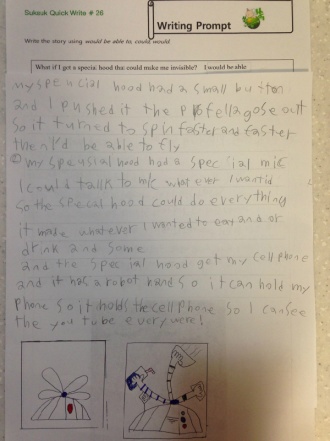 Sukeuk Quick Write # 26
Writing Prompt
Write the story using would be able to, could, would.
What if I got a special hood that could make me invisible? I would be able
my speucial hood had a small button
and I pushed it the out
so it turned to spin faster and faster
then I'd be able to fly
my speusial hood had a spec ial mic
I could tallk to mic what ever I wantid
So the specal hood could do everything
it make whatever I wanted to eat and or
drink and some
and the spec ial hood get my cell phone
and it has a robot hand so it can hold my
phone So it holds the cell phone so I can see
the you tube everywere!